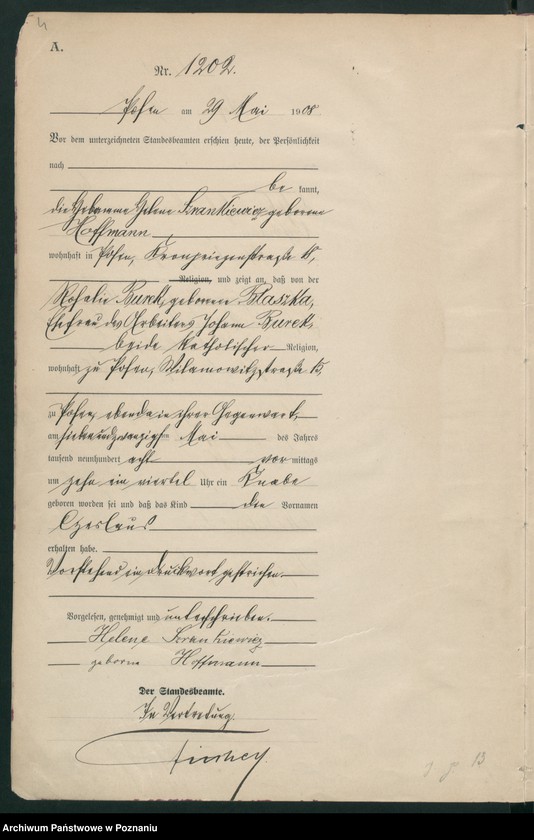 A.
Nr. 1202.
Posen am 29 Mai 1908
Vor dem unterzeichneten Standesbeamten erschien heute, der Persönlichkeit
nach
be kannt,
die Hebamme Helene Srankiewicz geborene
Hoffmann
wohnhaft in Posen, Kronprinzenstraße
Religion, und zeigt an, daß von der
Rosalie Burek, geborenen Blaszka,
Ehefrau des Arbeiters Johann Burek,
beide katholischer Religion,
wohnhaft zu Posen, Wilamowitzstraße 15,
zu Posen, ebenda in ihrer Gegenwart,
am siebenundzwanzigsten Mai des Jahres
tausend neunhundert acht vor mittags
um zehn ein viertel Uhr ein Knabe
geboren worden sei und daß das Kind den Vornamen
Czeslaus
erhalten habe.
Vorstehend ein Druckwort gestrichen.
Vorgelesen, genehmigt und unterschrieben.
Helene Srankiewicz
geborene Hoffmann
Der Standesbeamte.
In Vertretung.
13
Archiwum Państwowe w Poznaniu